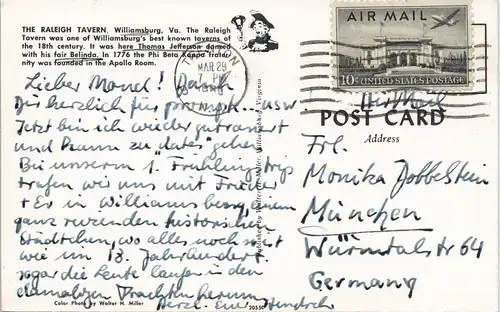 THE RALEIGH TAVERN, Williamsburg, Va. The Raleigh
Tavern was one of Williamsburg's best known taverns of
the 18th century. It was here Thomas Jefferson danced
with his fair Belinda. In 1776 the Phi Beta Kappa frater-
nity was founded in the Apollo Room.
Lieber Mond! Danke
Dir herzlich für prompte usw
Jetzt bin ich wieder
und kann zu "dates" gehen
Bei unserem 1. Frühlingstrip
trafen wir uns mit
+ Er in Williamsburg, einem
ganz reizenden historischen
Städtchen, wo alles noch ist
wie im 18. Jahrhundert.
sogar die Leute laufen in den
damaligen Trachten herum
Herzl. Eure
Color Photo by Walter H. Miller
20550
Williamsburg, Virginia
MAR 29
7 PM
AIR MAIL
10¢ UNITED STATES POSTAGE
Air Mail
POST CARD
Address
Frl.
Monika Dobbelstein
München
Würmtalstr 64
Germany